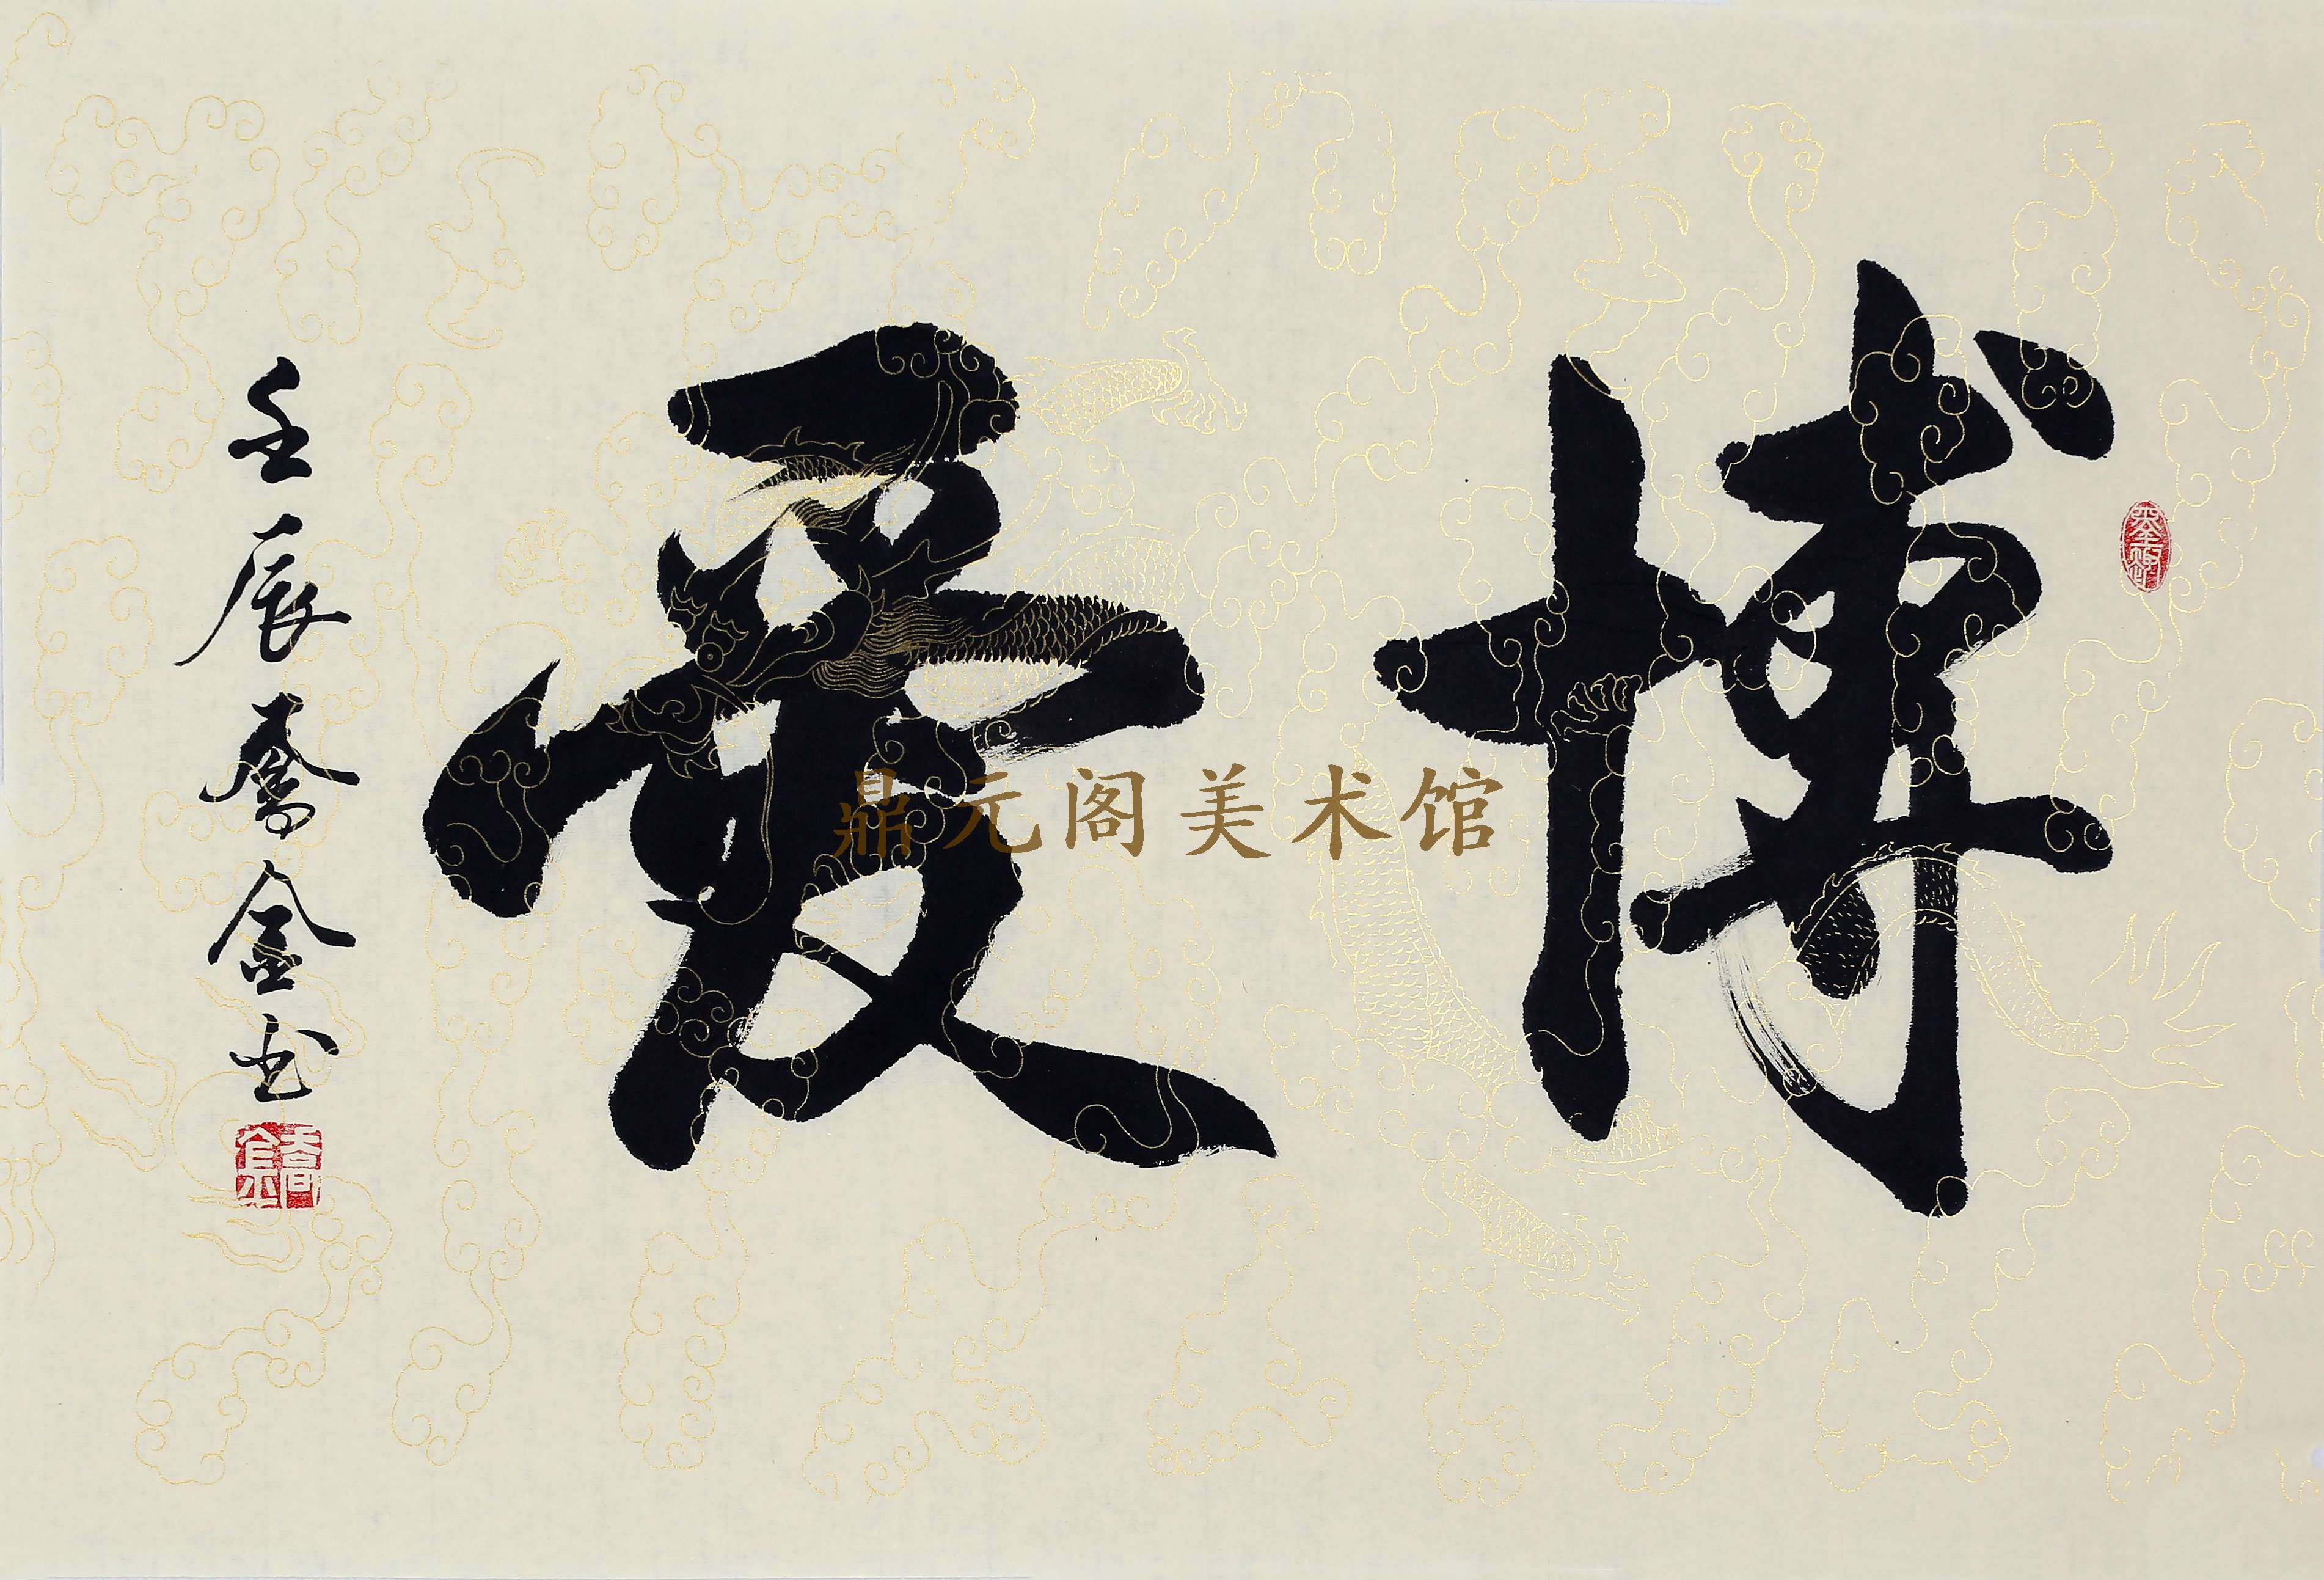 博愛
壬辰喬金书
鼎元阁美术馆